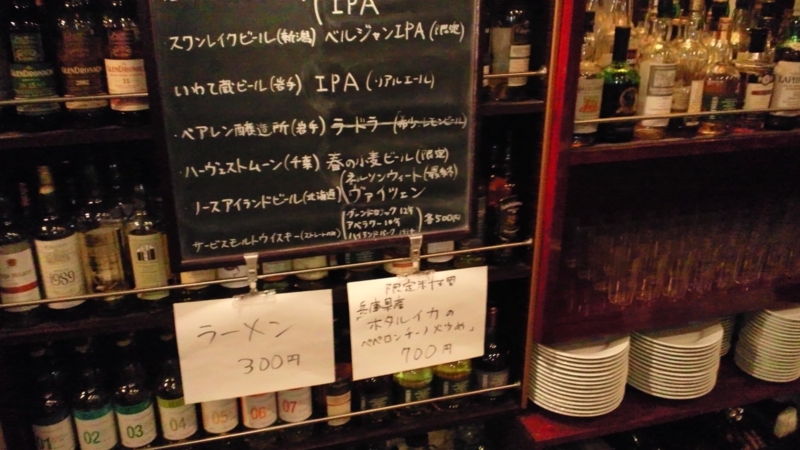 IPA
スワンレイクビール(新潟) ベルジャンIPA(限定)
いわて蔵ビール(岩手) IPA(リアルエール)
・ベアレン醸造所(岩手) ラードラー
・ハーヴェストムーン(千葉) 春の小麦ビール(限定)
・ノースアイランドビール(北海道)
ネルソンウィート
ヴァイツェン
サービスモルトウイスキー(ストレートのみ)
グレンドロナック 12年
アベラワー 10年
ハイランドパーク
各500円
ラーメン
300円
限定料理
兵庫県産
ホタルイカの
ペペロンチーノ炒め
700円
1989
01 02 03 04 05 06 07